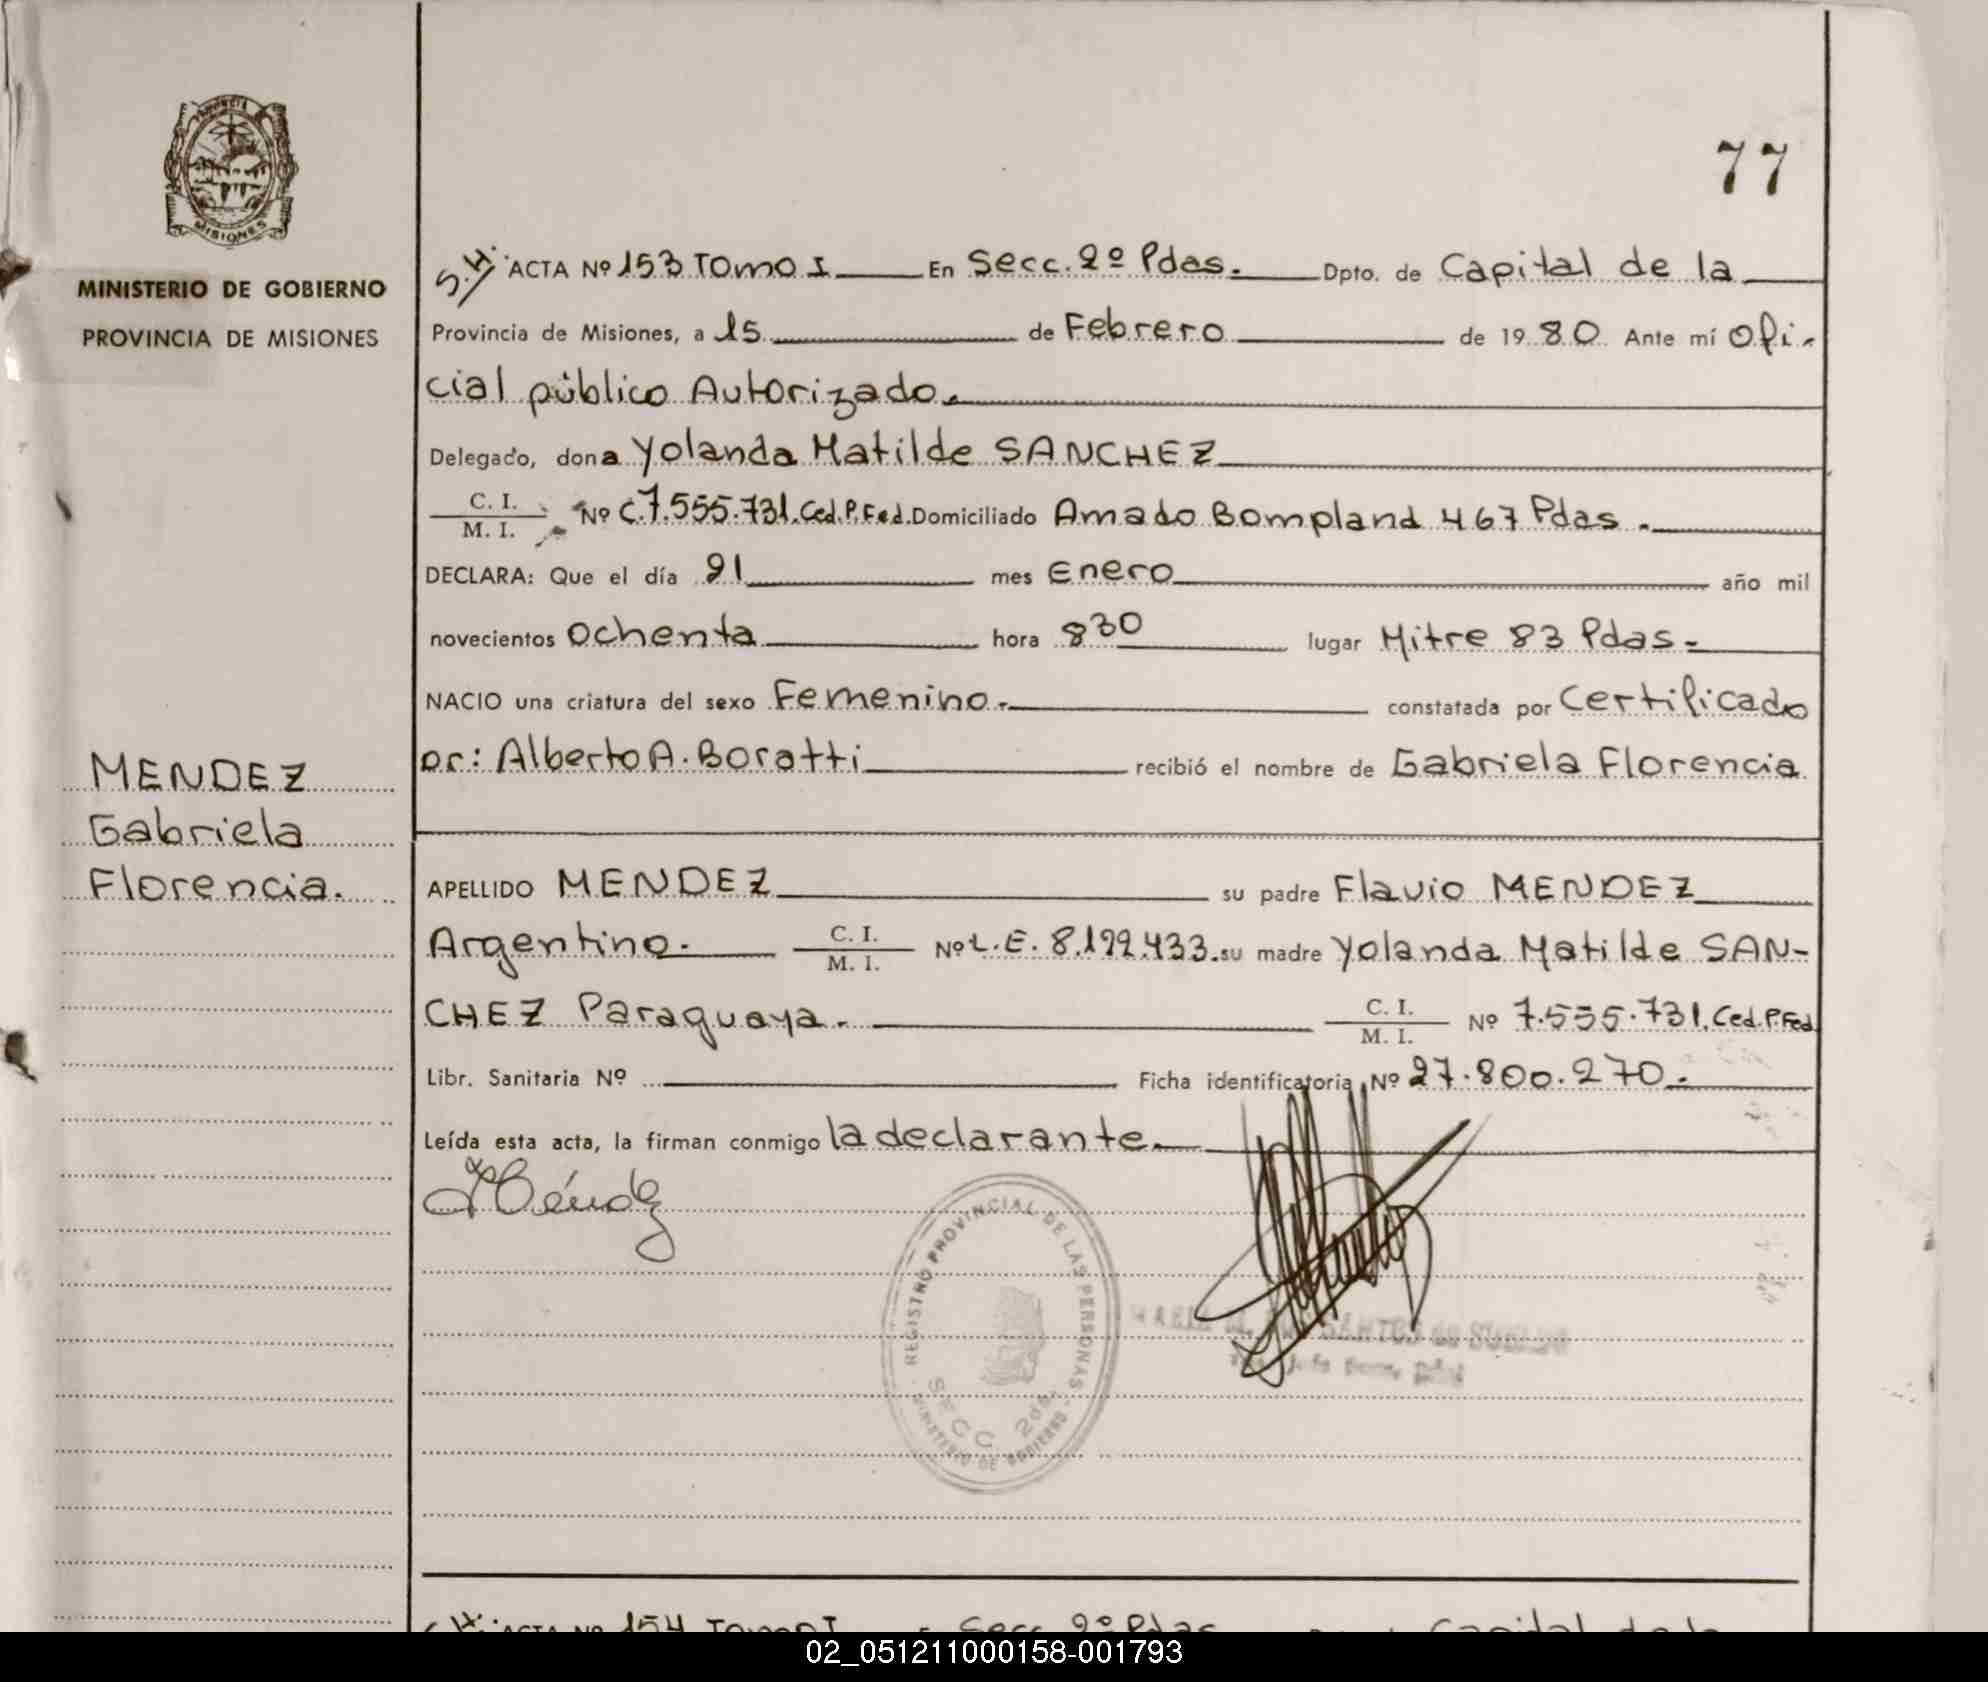 77
PROVINCIA
MISIONES
MINISTERIO DE GOBIERNO
PROVINCIA DE MISIONES
S.H. ACTA Nº 153 Tomo I En Secc. 2º Pdas. Dpto. de Capital de la
Provincia de Misiones, a 15 de Febrero de 1980 Ante mí Ofi-
cial público Autorizado.
Delegado, dona Yolanda Matilde SANCHEZ
C. I.
M. I. Nº C.7.555.731.Ced.P.Fed. Domiciliado Amado Bompland 467 Pdas.
DECLARA: Que el día 21 mes Enero año mil
novecientos ochenta hora 830 lugar Mitre 83 Pdas.-
NACIO una criatura del sexo Femenino.- constatada por Certificado
Dr: Alberto A. Boratti recibió el nombre de Gabriela Florencia
MENDEZ
Gabriela
Florencia.
APELLIDO MENDEZ su padre Flavio MENDEZ
Argentino. C. I.
M. I. Nº L.E. 8.192.433. su madre Yolanda Matilde SAN-
CHEZ Paraguaya. C. I.
M. I. Nº 7.555.731. Ced. P. Fed
Libr. Sanitaria Nº Ficha identificatoria Nº 27.800.270.
Leída esta acta, la firman conmigo la declarante.
REGISTRO PROVINCIAL DE LAS PERSONAS
SECC. 2da.
MINISTERIO DE GOBIERNO
ACTA Nº 154 Tomo I Secc. 2º Pdas Capital de la
02_051211000158-001793